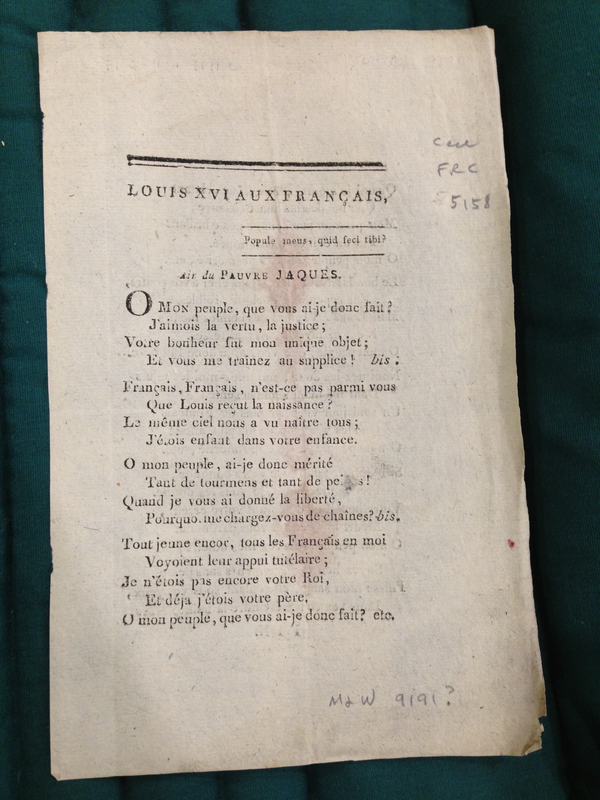 Case
FRC
5158
LOUIS XVI AUX FRANÇAIS,
Popule meus, quid feci tibi?
Air du PAUVRE JAQUES.
O MON peuple, que vous ai-je donc fait?
J'aimois la vertu, la justice;
Votre bonheur fut mon unique objet;
Et vous me traînez au supplice! bis.
Français, Français, n'est-ce pas parmi vous
Que Louis reçut la naissance?
Le même ciel nous a vu naître tous;
J'étois enfant dans votre enfance.
O mon peuple, ai-je donc mérité
Tant de tourmens et tant de
Quand je vous ai donné la liberté,
Pourquo. me chargez-vous de chaînes? bis.
Tout jeune encor, tous les Français en moi
Voyoient leur appui tutélaire;
Je n'étois pas encore votre Roi,
Et déja j'étois votre père,
O mon peuple, que vous ai-je donc fait? etc.
M&W 9191?